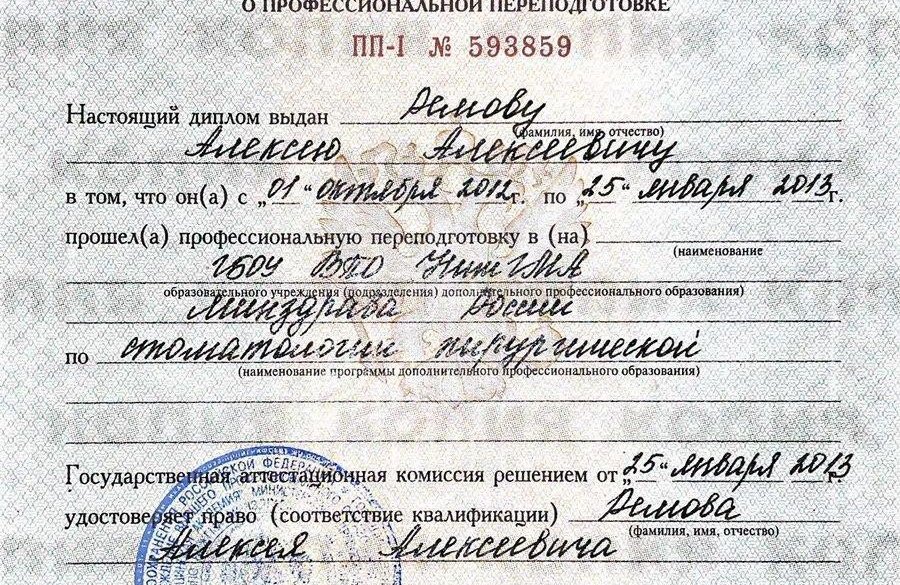 О ПРОФЕССИОНАЛЬНОЙ ПЕРЕПОДГОТОВКЕ
ПП-I № 593859
Настоящий диплом выдан Демову
(фамилия, имя, отчество)
Алексею Алексеевичу
в том, что он(а) с „01“ октября 2012г. по „25“ января 2013г.
прошел(а) профессиональную переподготовку в (на)
(наименование
ГБОУ ВПО НижГМА
образовательного учреждения (подразделения) дополнительного профессионального образования)
Минздрава России
по стоматологии хирургической
(наименование программы дополнительного профессионального образования)
Государственная аттестационная комиссия решением от „25“ января 2013
удостоверяет право (соответствие квалификации) Демова
(фамилия, имя, отчество)
Алексея Алексеевича